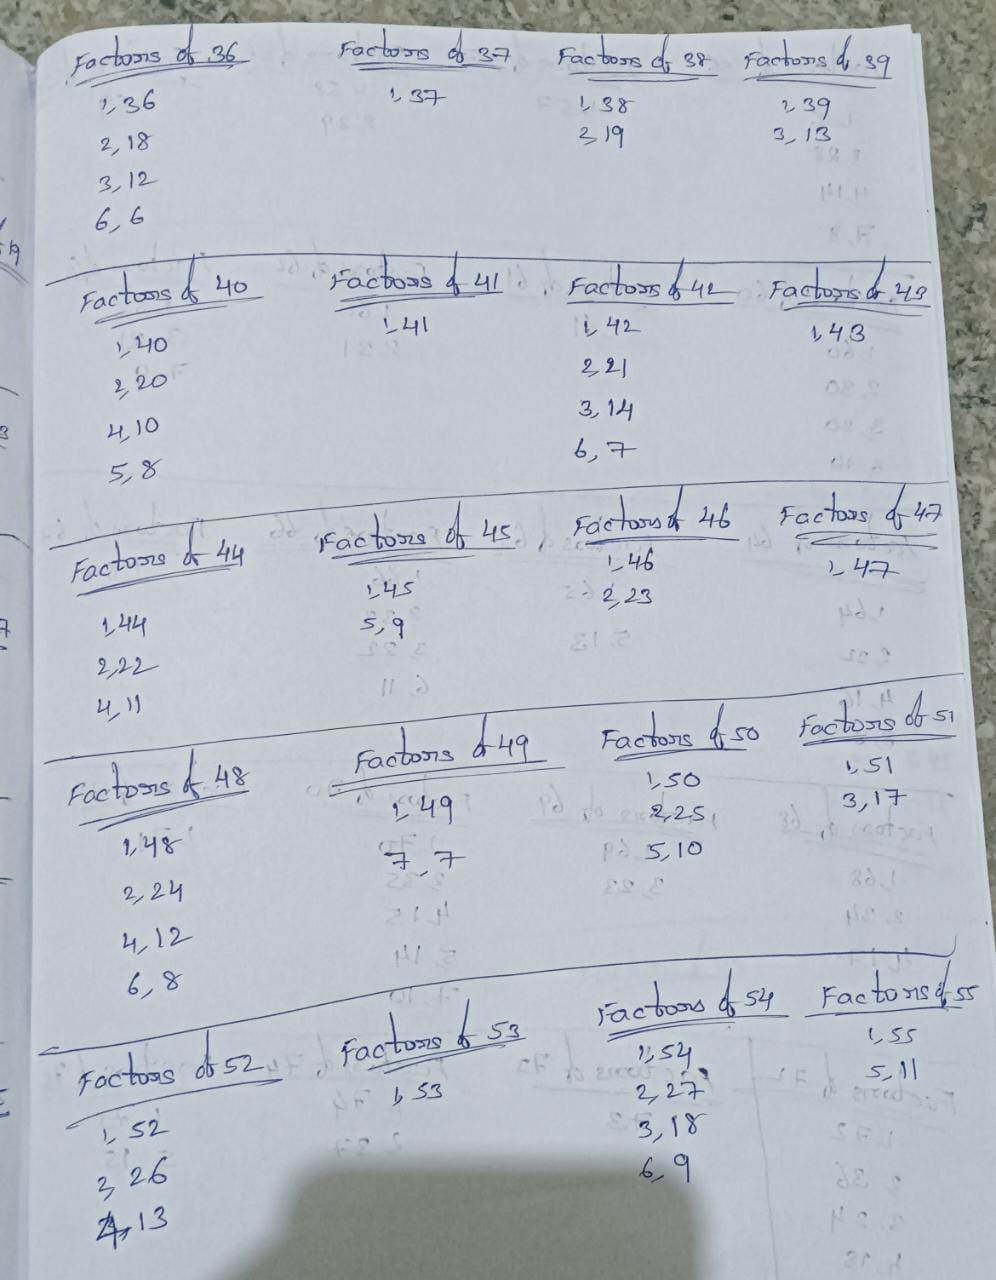 Factors of 36
1, 36
2, 18
3, 12
6, 6
Factors of 37
1, 37
Factors of 38
1, 38
2, 19
Factors of 39
1, 39
3, 13
Factors of 40
1, 40
2, 20
4, 10
5, 8
Factors of 41
1, 41
Factors of 42
1, 42
2, 21
3, 14
6, 7
Factors of 43
1, 43
Factors of 44
1, 44
2, 22
4, 11
Factors of 45
1, 45
5, 9
Factors of 46
1, 46
2, 23
Factors of 47
1, 47
Factors of 48
1, 48
2, 24
4, 12
6, 8
Factors of 49
1, 49
7, 7
Factors of 50
1, 50
2, 25
5, 10
Factors of 51
1, 51
3, 17
Factors of 52
1, 52
2, 26
4, 13
Factors of 53
1, 53
Factors of 54
1, 54
2, 27
3, 18
6, 9
Factors of 55
1, 55
5, 11